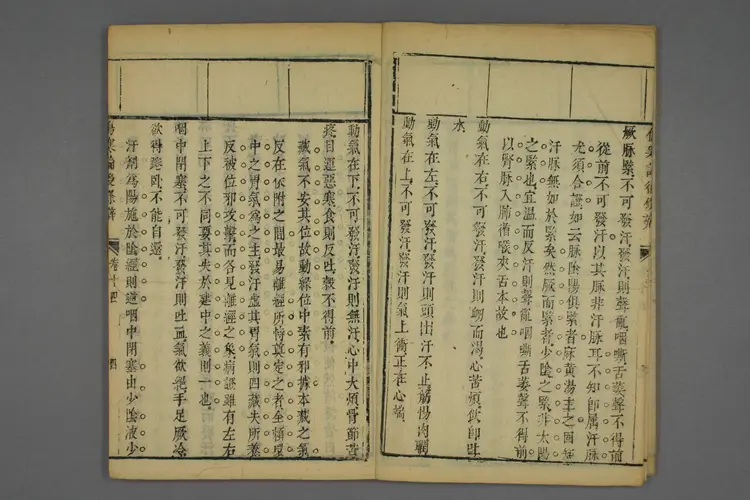 厥脉緊不可發汗發汗則聲亂咽嘶舌萎聲不得前
從前不可發汗以其脉非汗脉耳不知卽屬汗脉
尤須合證如云脉陰陽俱緊者麻黃湯主之固
汗脉無如於緊矣然厥而緊者少陰之緊非太陽
之緊也宜溫而反汗則聲亂咽嘶舌萎聲不得前
以腎脉入肺循喉夾舌本故也
動氣在右不可發汗發汗則衂而渴心苦煩飲卽吐
水
動氣在左不可發汗發汗則頭眩汗不止筋惕肉瞤
動氣在上不可發汗發汗則氣上衝正在心端
動氣在下不可發汗發汗則無汗心中大煩骨節苦
疼目運惡寒食則反吐穀不得前
藏氣不安其位故動緣位中素有邪據本藏之氣
反在依附之間最易離經所恃奠定之者全
中之胃氣爲之主發汗虛其胃氣則四藏失所養
反被位邪攻擊而各見離經之象病證雖有左右
上下之不同要其失於建中之義則一也
咽中閉塞不可發汗發汗則吐血氣欲絕手足厥冷
欲得踡臥不能自溫
汗劑爲陽施於陰經則逆咽中閉塞由少陰液少
傷寒論後條辨
卷十四
四